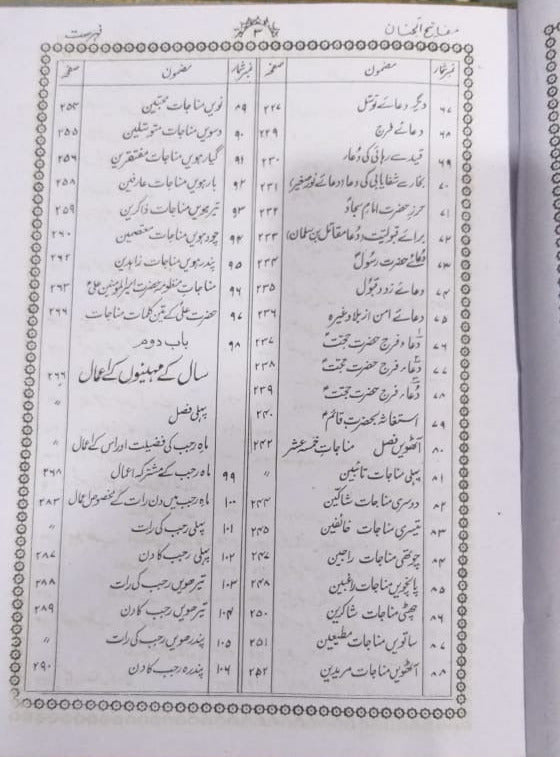 مفاتیح الجنان ۳ فہرست
نمبر شمار مضمون صفحہ
۶۷ دیگر دعائے توسل ۲۲۷
۶۸ دعائے فرج ۲۲۹
۶۹ قید سے رہائی کی دُعاء ۲۳۰
۷۰ بخار سے شفایابی کی دعا (دعائے نور صغیر) ۲۳۱
۷۱ حرز حضرت امام سجادؑ ۲۳۲
۷۲ برائے قبولیت (دُعا مقاتل بن سلمان) ۲۳۳
۷۳ دُعائے حضرت رسولؐ ۲۳۴
۷۴ دعائے زود قبول ۲۳۵
۷۵ دعائے امن از بلا وغیرہ ۲۳۶
۷۶ دُعاء فرج حضرت حجتؑ ۲۳۷
۷۷ دُعاء فرج حضرت حجتؑ ۲۳۸
۷۸ دُعاء فرج حضرت حجتؑ ۲۳۹
۷۹ استغاثہ بحضرت قائمؑ ۲۴۰
۸۰ آٹھویں فصل مناجات خمسہ عشر ۲۴۲
۸۱ پہلی مناجات تائبین 〃
۸۲ دوسری مناجات شاکین ۲۴۴
۸۳ تیسری مناجات خائفین ۲۴۵
۸۴ چوتھی مناجات راجین ۲۴۷
۸۵ پانچویں مناجات راغبین ۲۴۸
۸۶ چھٹی مناجات شاکرین ۲۵۰
۸۷ ساتویں مناجات مطیعین ۲۵۱
۸۸ آٹھویں مناجات مریدین ۲۵۲
نمبر شمار مضمون صفحہ
۸۹ نویں مناجات محبین ۲۵۳
۹۰ دسویں مناجات متوسلین ۲۵۵
۹۱ گیارہویں مناجات مفتقرین ۲۵۶
۹۲ بارہویں مناجات عارفین ۲۵۸
۹۳ تیرھویں مناجات ذاکرین ۲۵۹
۹۴ چودہویں مناجات معتصمین ۲۶۰
۹۵ پندرہویں مناجات زاہدین ۲۶۲
۹۶ مناجات منظوم حضرت امیر المؤمنین علیؑ ۲۶۳
۹۷ حضرت علیؑ کے تین کلمات مناجات ۲۶۶
۹۸ باب دوم
سال کے مہینوں کے اعمال ۲۶۶
پہلی فصل
ماہ رجب کی فضیلت اور اس کے اعمال 〃
۹۹ ماہ رجب کے مشترکہ اعمال ۲۶۸
۱۰۰ ماہ رجب میں دن رات کے مخصوص اعمال ۲۸۳
۱۰۱ پہلی رجب کی رات 〃
۱۰۲ پہلی رجب کا دن ۲۸۷
۱۰۳ تیرھویں رجب کی رات ۲۸۸
۱۰۴ تیرھویں رجب کا دن ۲۸۹
۱۰۵ پندرھویں رجب کی رات 〃
۱۰۶ پندرہ رجب کا دن ۲۹۰